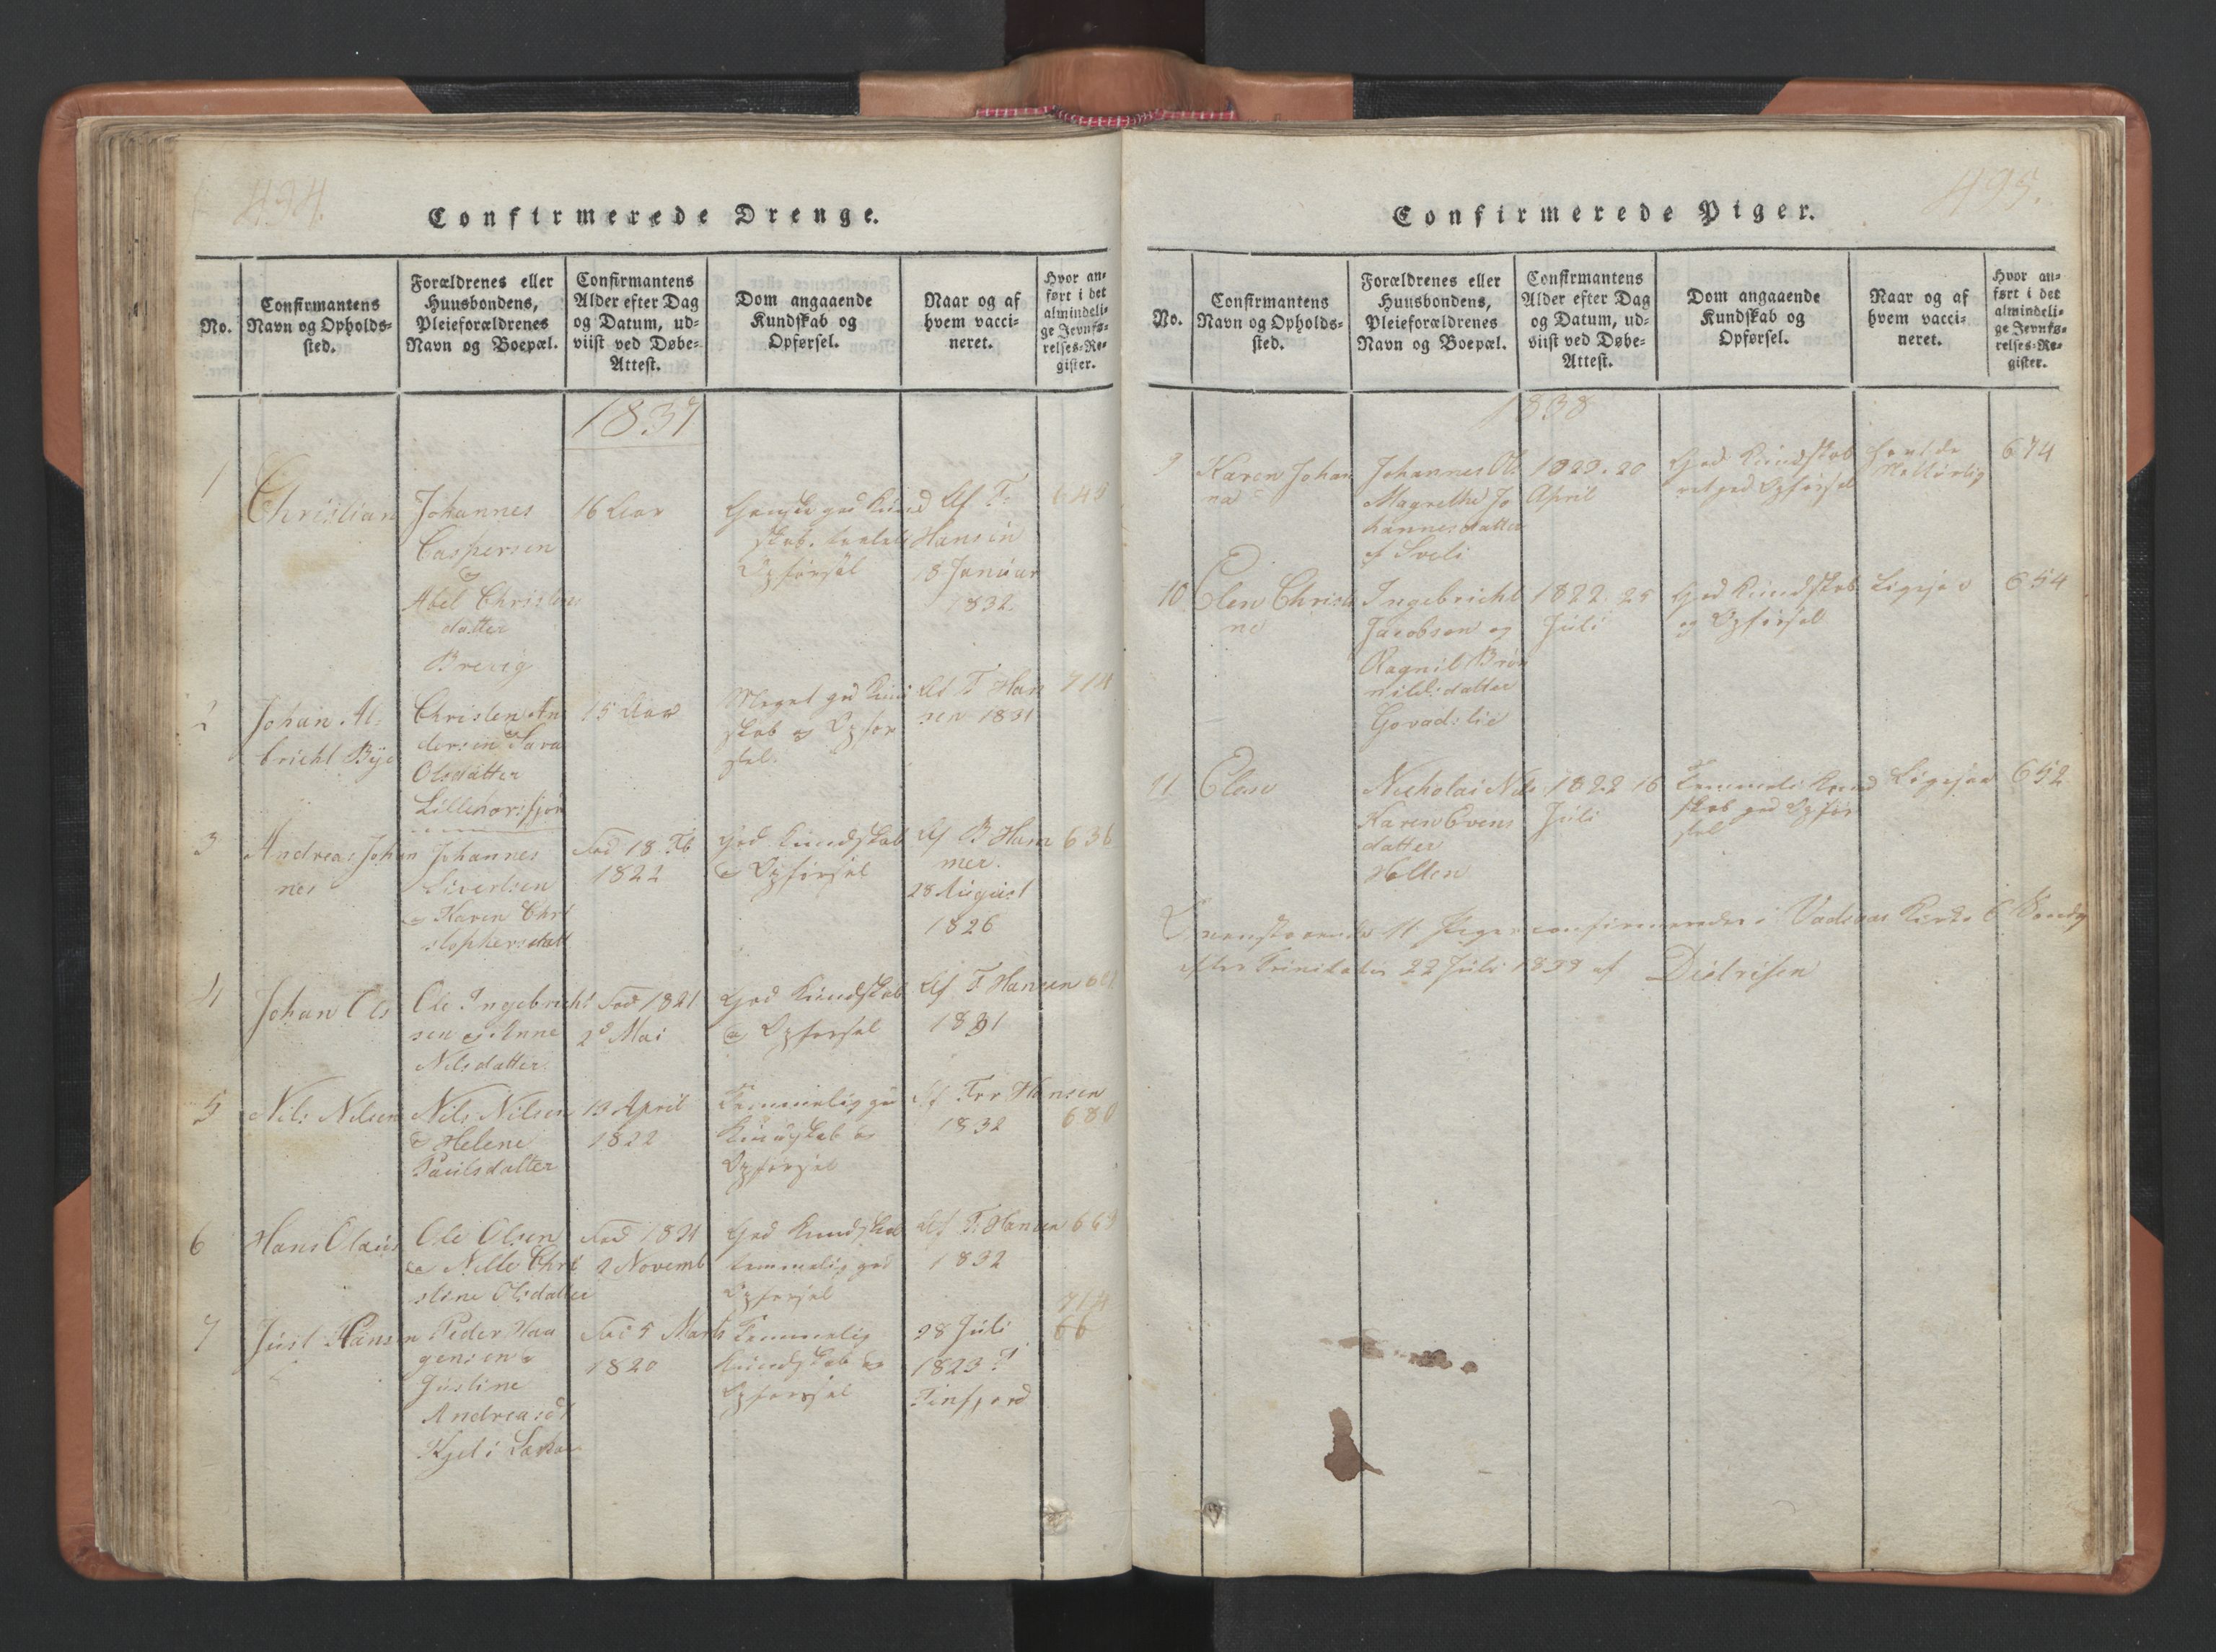 494.
Confirmerede Drenge.
No.
Confirmantens
Navn og Opholds-
sted.
Forældrenes eller
Huusbondens,
Pleieforældrenes
Navn og Boepæl.
Confirmantens
Alder efter Dag
og Datum, ud-
viist ved Døbe-
Attest.
Dom angaaende
Kundskab og
Opførsel.
Naar og af
hvem vacci-
neret.
Hvor an-
ført i det
almindeli-
ge Jevnfø-
relses-Re-
gister.
1837
1
Christian
Johannes
Caspersen
og
Abel Christens
datter
Brevig
16 Aar
Ganske god Kund
skab.
Opførsel
Af F.
Hansen
18 Januar
1832.
645
2
Johan Al-
bricht Bye
Christen An
dersen Sara
Olsdatter
Lillehorsfjor
15 Aar
Meget god Kund
skab og Opfør
sel.
Af F Han
sen 1831
714
3
Andreas Johan
nes
Johannes
Sivertsen
og Karen Chri
stophersdatt
Fød 18 Fb
1822
God Kundskab
og Opførsel
Af B Ham
mer.
28 August
1826
636
4
Johan Ols
Ole Ingebricht
sen og Anne
Nilsdatter.
Fød 1821
2d Mai
God Kundskab
og Opførsel
Af F Hansen
1831
5
Nils Nilsen
Nils Nilsen
og Helene
Paulsdatter
13 April
1822
Temmelig god
Kundskab og
Opførsel
Af Frr Hansen
1832
680
6
Hans Olaus
Ole Olsen
og Nelle Chri
stine Olsdatter
Fød 1821
2 Novemb
God Kundskab
temmelig god
Opførsel
Af F. Hansen
1832
669
7
Just Hansen
Peder Haa
gensen og
Justine
Andreasd
Kjel i
Fød 5 Marts
1820
Temmelig
Kundskab og
Opførsel
28 Juli
1823 F
Finfjord
714
66
495.
Confirmerede Piger.
No.
Confirmantens
Navn og Opholds-
sted.
Forældrenes eller
Huusbondens,
Pleieforældrenes
Navn og Boepæl.
Confirmantens
Alder efter Dag
og Datum, ud-
viist ved Døbe-
Attest.
Dom angaaende
Kundskab og
Opførsel.
Naar og af
hvem vacci-
neret.
Hvor an-
ført i det
almindeli-
ge Jevnfø-
relses-Re-
gister.
1838
9
Karen Johan
na
Johannes Ols
Magrethe Jo
hannesdatter
af Sveli
1823. 20
April
God Kundskab
ret god Opførsel
674
10
Elen Christi
ne
Ingebricht
Jacobsen og
Ragnil Brø
nildsdatter
Govadslie
1822. 25
Juli
God Kundskab
og Opførsel
Ligesaa
654
11
Elen
Nicholai Nils
Karen Evens
datter
Holten
1822 16
Juli
Temmeli Kund
skab god Opfør
sel
Ligesaa
652.
Ovenstaaende 11 Piger confirmerdes i Vadsaas Kirke 6 Søndag
efter Trinitatis 22 Juli 1838 af Dietrisen